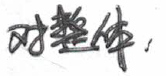 对整体，